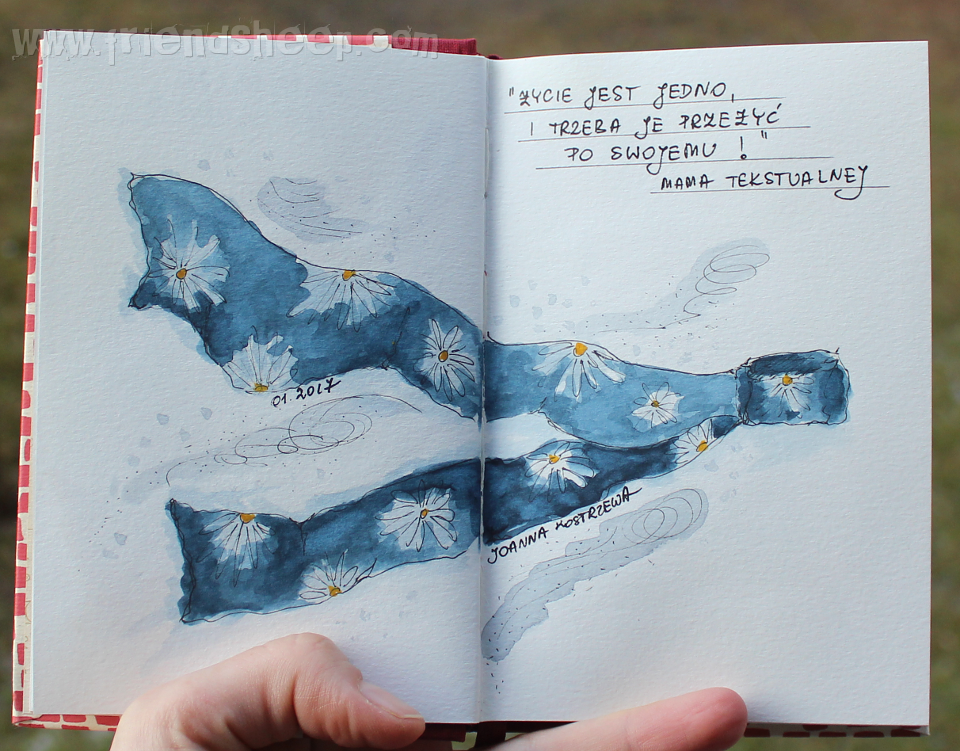 www.friendsheep.com
"ŻYCIE JEST JEDNO,
I TRZEBA JE PRZEŻYĆ
PO SWOJEMU !"
MAMA TEKSTUALNEJ
01.2017
JOANNA KOSTRZEWA